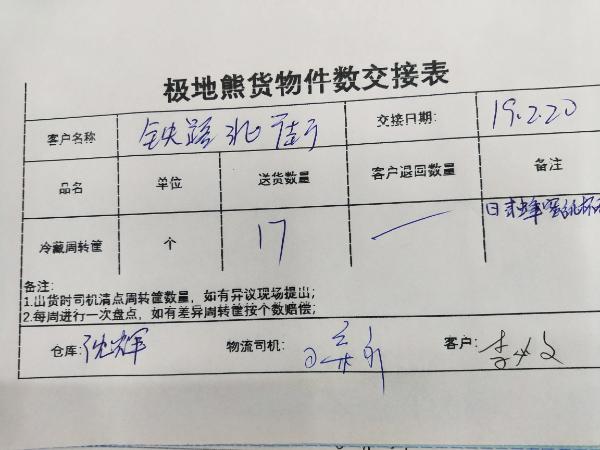 极地熊货物件数交接表
客户名称 铁路北街 交接日期: 19.2.20
品名 单位 送货数量 客户退回数量 备注
冷藏周转筐 个 17 —
备注:
1.出货时司机清点周转筐数量，如有异议现场提出;
2.每周进行一次盘点，如有差异周转筐按个数赔偿;
仓库: 沈辉 物流司机: 客户: